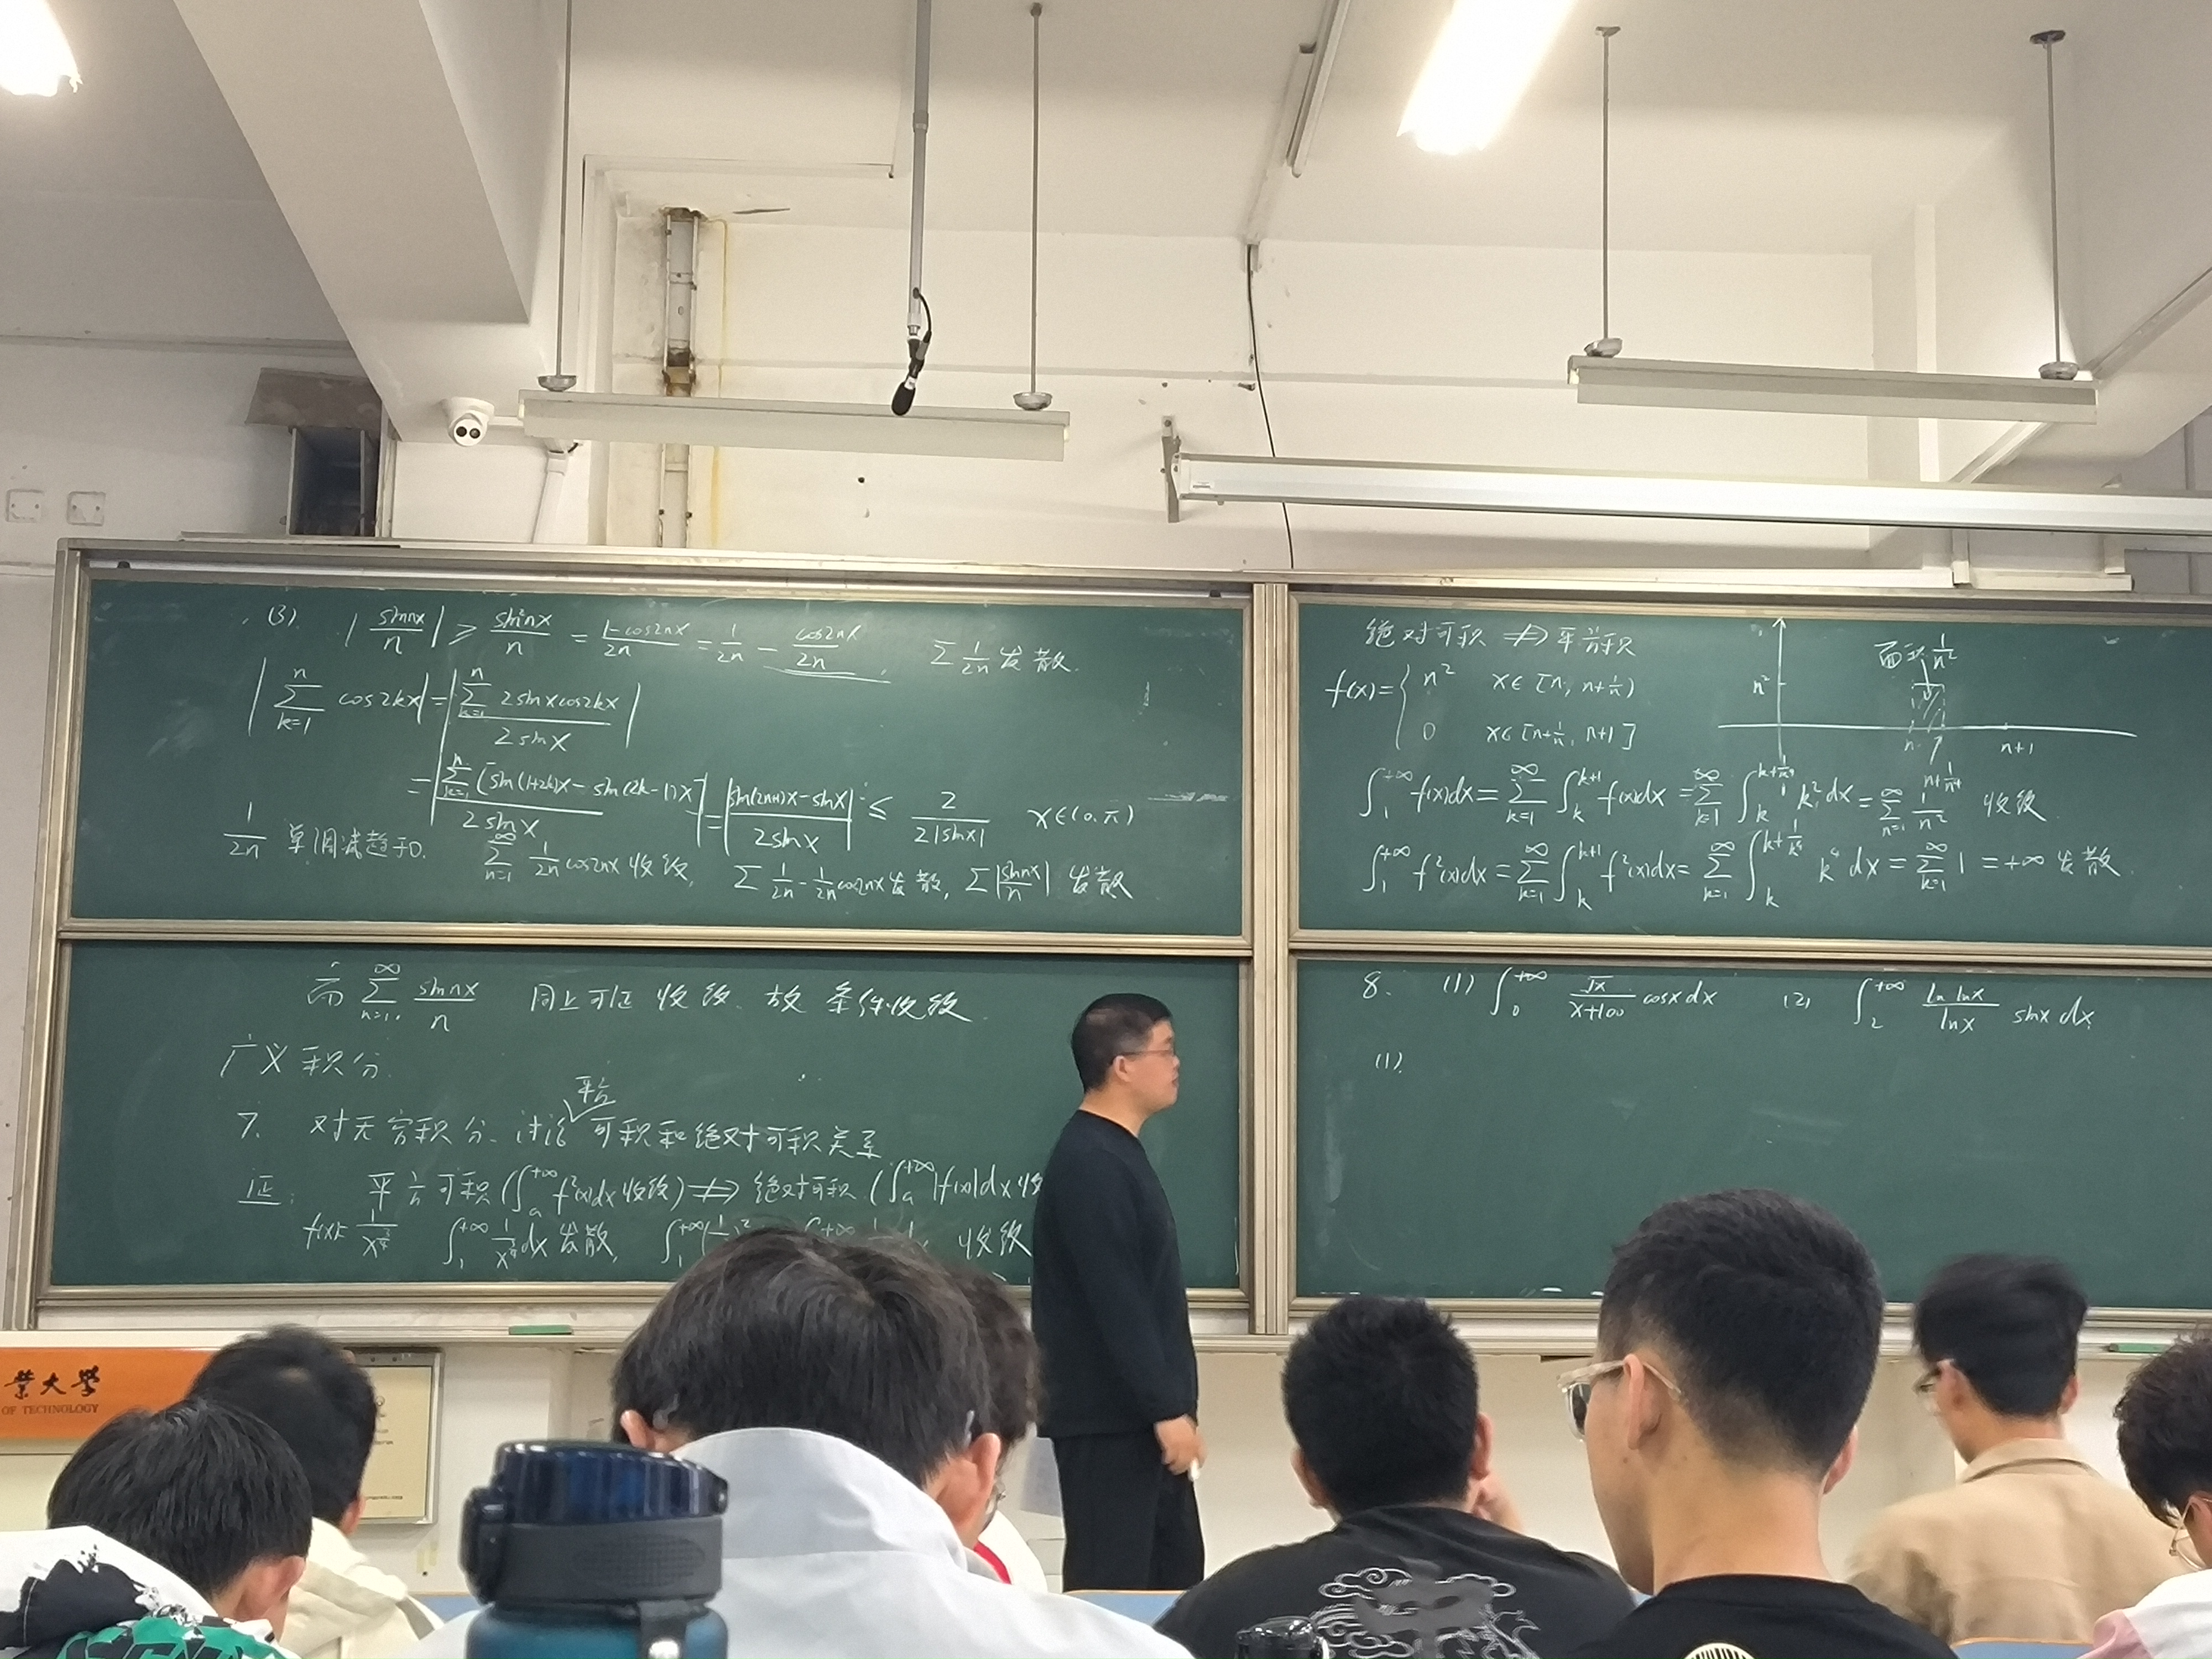 (3) |sinnx/n| ≥ sin²nx/n = 1-cos2nx/2n = 1/2n - cos2nx/2n, Σ 1/2n 发散.
|Σ_{k=1}^{n} cos2kx| = |Σ_{k=1}^{n} 2sinxcos2kx / 2sinx|
= |Σ_{k=1}^{n} (sin(1+2k)x - sin(2k-1)x / 2sinx| = |sin(2n+1)x - sinx / 2sinx| ≤ 2/2|sinx| x∈(0,π)
1/2n 单调减趋于0. Σ_{n=1}^{∞} 1/2n cos2nx 收敛, Σ 1/2n - 1/2n cos2nx 发散, Σ|sinnx/n| 发散
而 Σ_{n=1}^{∞} sinnx/n 同上可证 收敛. 故 条件收敛.
广义积分
7. 对无穷积分. 讨论平方可积和绝对可积关系
证: 平方可积 (∫_a^{+∞} f²(x)dx 收敛) ⇏ 绝对可积 (∫_a^{+∞} |f(x)|dx 收
f(x)= 1/x^{3/4} ∫_1^{+∞} 1/x^{3/4} dx 发散, ∫_1^{+∞} 收敛
绝对可积 ⇏ 平方可积
f(x)= { n² x∈[n, n+1/n⁴)
0 x∈[n+1/n⁴, n+1]
面积 1/n²
n²
n n+1
n+1/n⁴
∫_1^{+∞} f(x)dx = Σ_{k=1}^{∞} ∫_k^{k+1} f(x)dx = Σ_{k=1}^{∞} ∫_k^{k+1/k⁴} k² dx = Σ_{n=1}^{∞} 1/n² 收敛
∫_1^{+∞} f²(x)dx = Σ_{k=1}^{∞} ∫_k^{k+1} f²(x)dx = Σ_{k=1}^{∞} ∫_k^{k+1/k⁴} k⁴ dx = Σ_{k=1}^{∞} 1 = +∞ 发散
8. (1) ∫_0^{+∞} √x/x+100 cosxdx (2) ∫_2^{+∞} lnlnx/lnx sinxdx
(1).
業大學
OF TECHNOLOGY